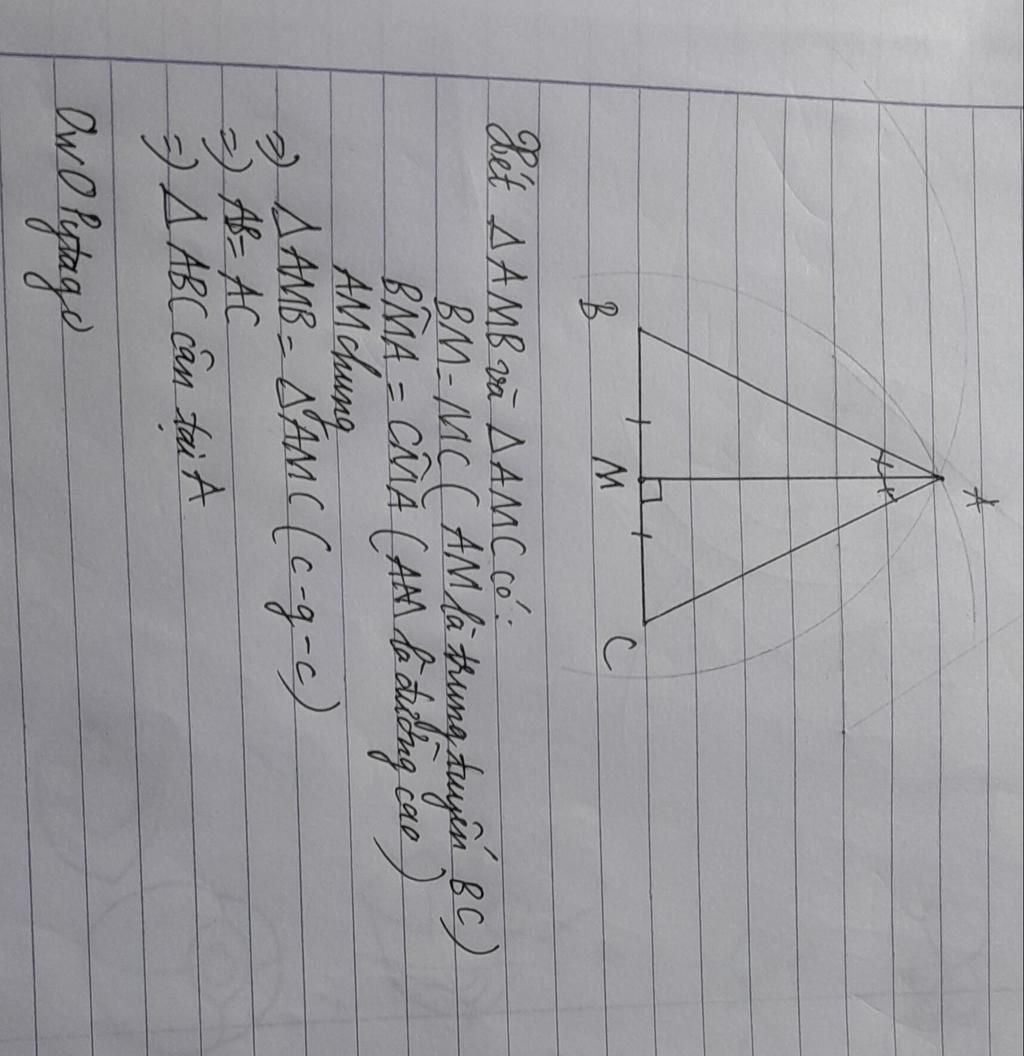 A
B M C
Xét Δ AMB và Δ AMC có:
BM = MC ( AM là trung tuyến BC)
BM̂A = CM̂A ( AM là đường cao)
AM chung
=> Δ AMB = Δ AMC ( c-g-c )
=> AB = AC
=> Δ ABC cân tại A
Pytago